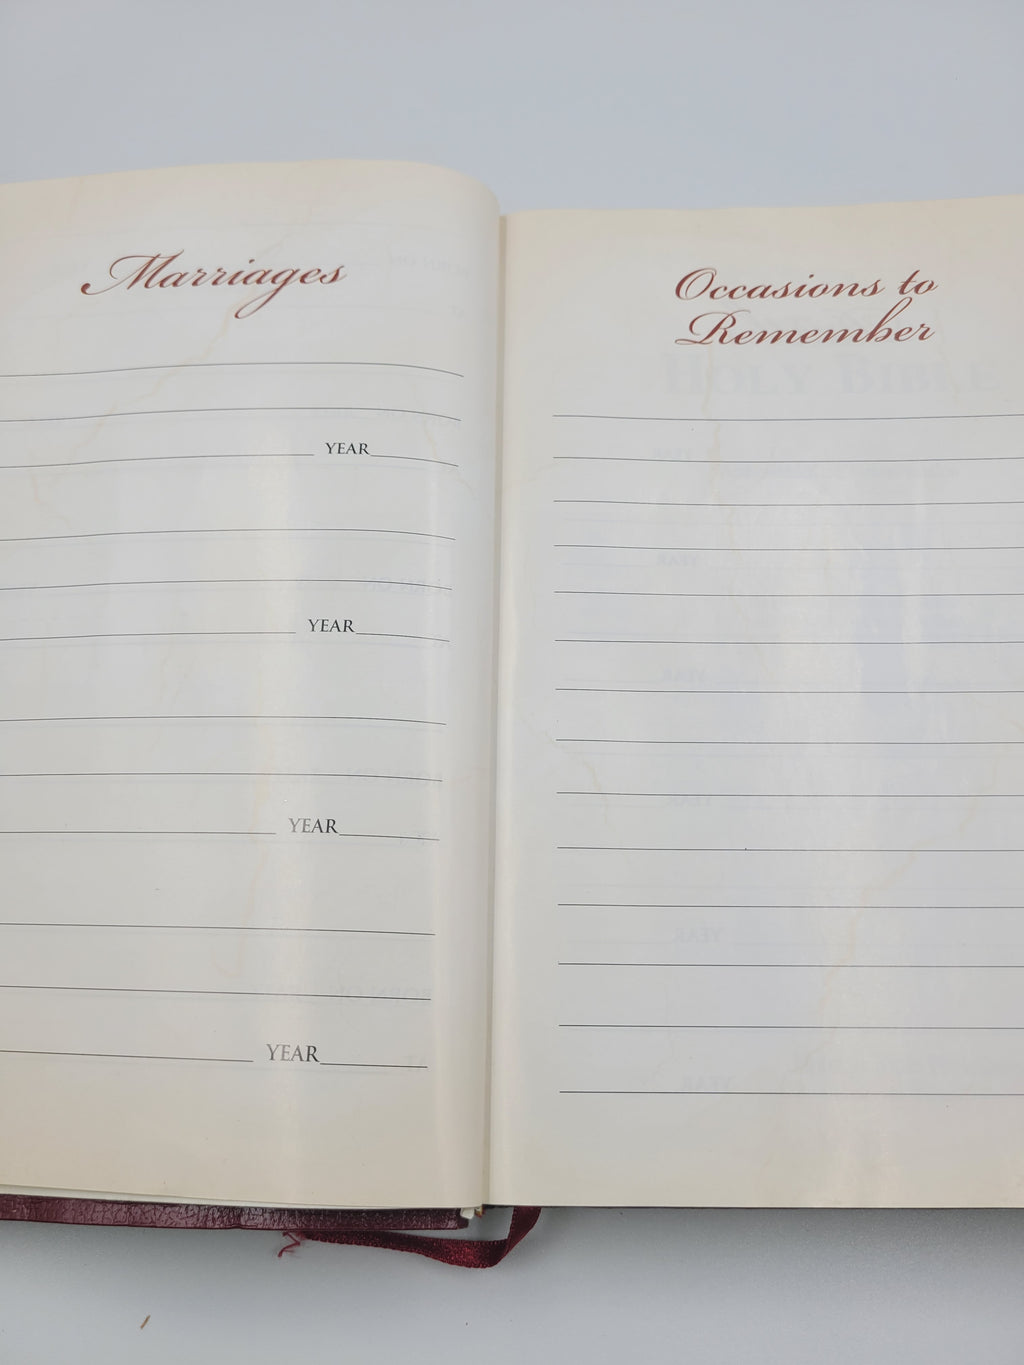 Marriages
YEAR
YEAR
YEAR
YEAR
Occasions to
Remember
HOLY BIBLE